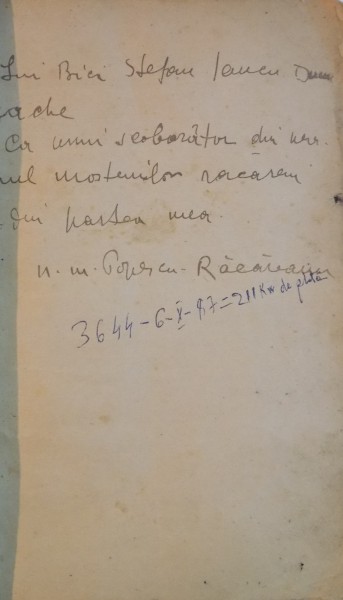 Lui Bici Stefan Iancu Dum
ache
Ca unui scoborâtor din nea-
mul mostenilor racăreni
din partea mea.
N. M. Popescu-Răcăreanu
3644-6-X-87=211 Kw de plată